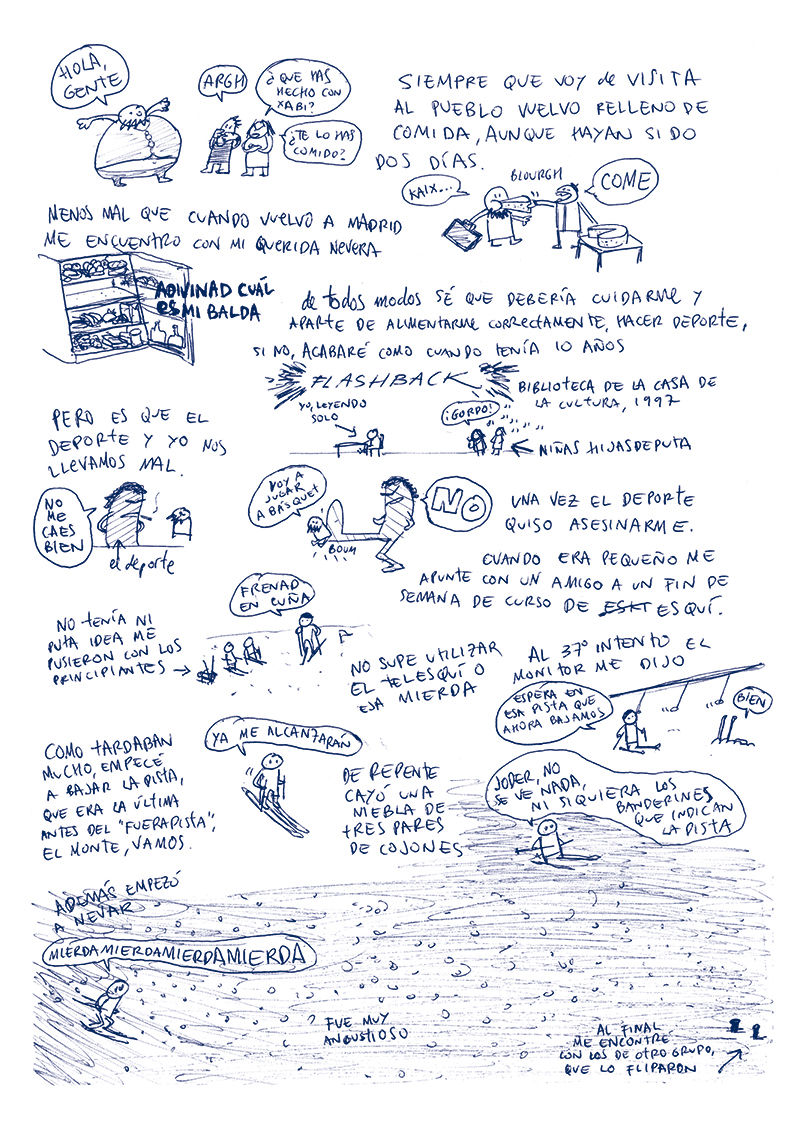 HOLA,
GENTE
ARGH
¿QUE HAS
HECHO CON
XABI?
¿TE LO HAS
COMIDO?
SIEMPRE QUE VOY de VISITA
AL PUEBLO VUELVO RELLENO DE
COMIDA, AUNQUE HAYAN SIDO
DOS DÍAS.
KAIX...
BLOURGH
COME
MENOS MAL QUE CUANDO VUELVO A MADRID
ME ENCUENTRO CON MI QUERIDA NEVERA
ADIVINAD CUÁL
ES MI BALDA
de todos modos SÉ QUE DEBERÍA CUIDARME Y
APARTE DE ALIMENTARME CORRECTAMENTE, HACER DEPORTE,
SI NO, ACABARÉ COMO CUANDO TENÍA 10 AÑOS
FLASHBACK
BIBLIOTECA DE LA CASA DE
LA CULTURA, 1997
YO, LEYENDO
SOLO
¡GORDO!
NIÑAS HIJASDEPUTA
PERO ES QUE EL
DEPORTE Y YO NOS
LLEVAMOS MAL.
NO
ME
CAES
BIEN
el deporte
VOY A
JUGAR
A BÁSQUET
BOUM
NO
UNA VEZ EL DEPORTE
QUISO ASESINARME.
CUANDO ERA PEQUEÑO ME
APUNTE CON UN AMIGO A UN FIN DE
SEMANA DE CURSO DE ESKI ESQUÍ.
NO TENÍA NI
PUTA IDEA ME
PUSIERON CON LOS
PRINCIPIANTES
FRENAD
EN CUÑA
NO SUPE UTILIZAR
EL TELESQUÍ O
ESA MIERDA
AL 37º INTENTO EL
MONITOR ME DIJO
ESPERA EN
ESA PISTA QUE
AHORA BAJAMOS
BIEN
COMO TARDABAN
MUCHO, EMPECÉ
A BAJAR LA PISTA,
QUE ERA LA ÚLTIMA
ANTES DEL "FUERAPISTA",
EL MONTE, VAMOS.
YA ME ALCANZARÁN
DE REPENTE
CAYÓ UNA
NIEBLA DE
TRES PARES
DE COJONES
JODER, NO
SE VE NADA,
NI SIQUIERA LOS
BANDERINES
QUE INDICAN
LA PISTA
ADEMÁS EMPEZÓ
A NEVAR
MIERDAMIERDAMIERDAMIERDA
FUE MUY
ANGUSTIOSO
AL FINAL
ME ENCONTRÉ
CON LOS DE OTRO GRUPO,
QUE LO FLIPARON